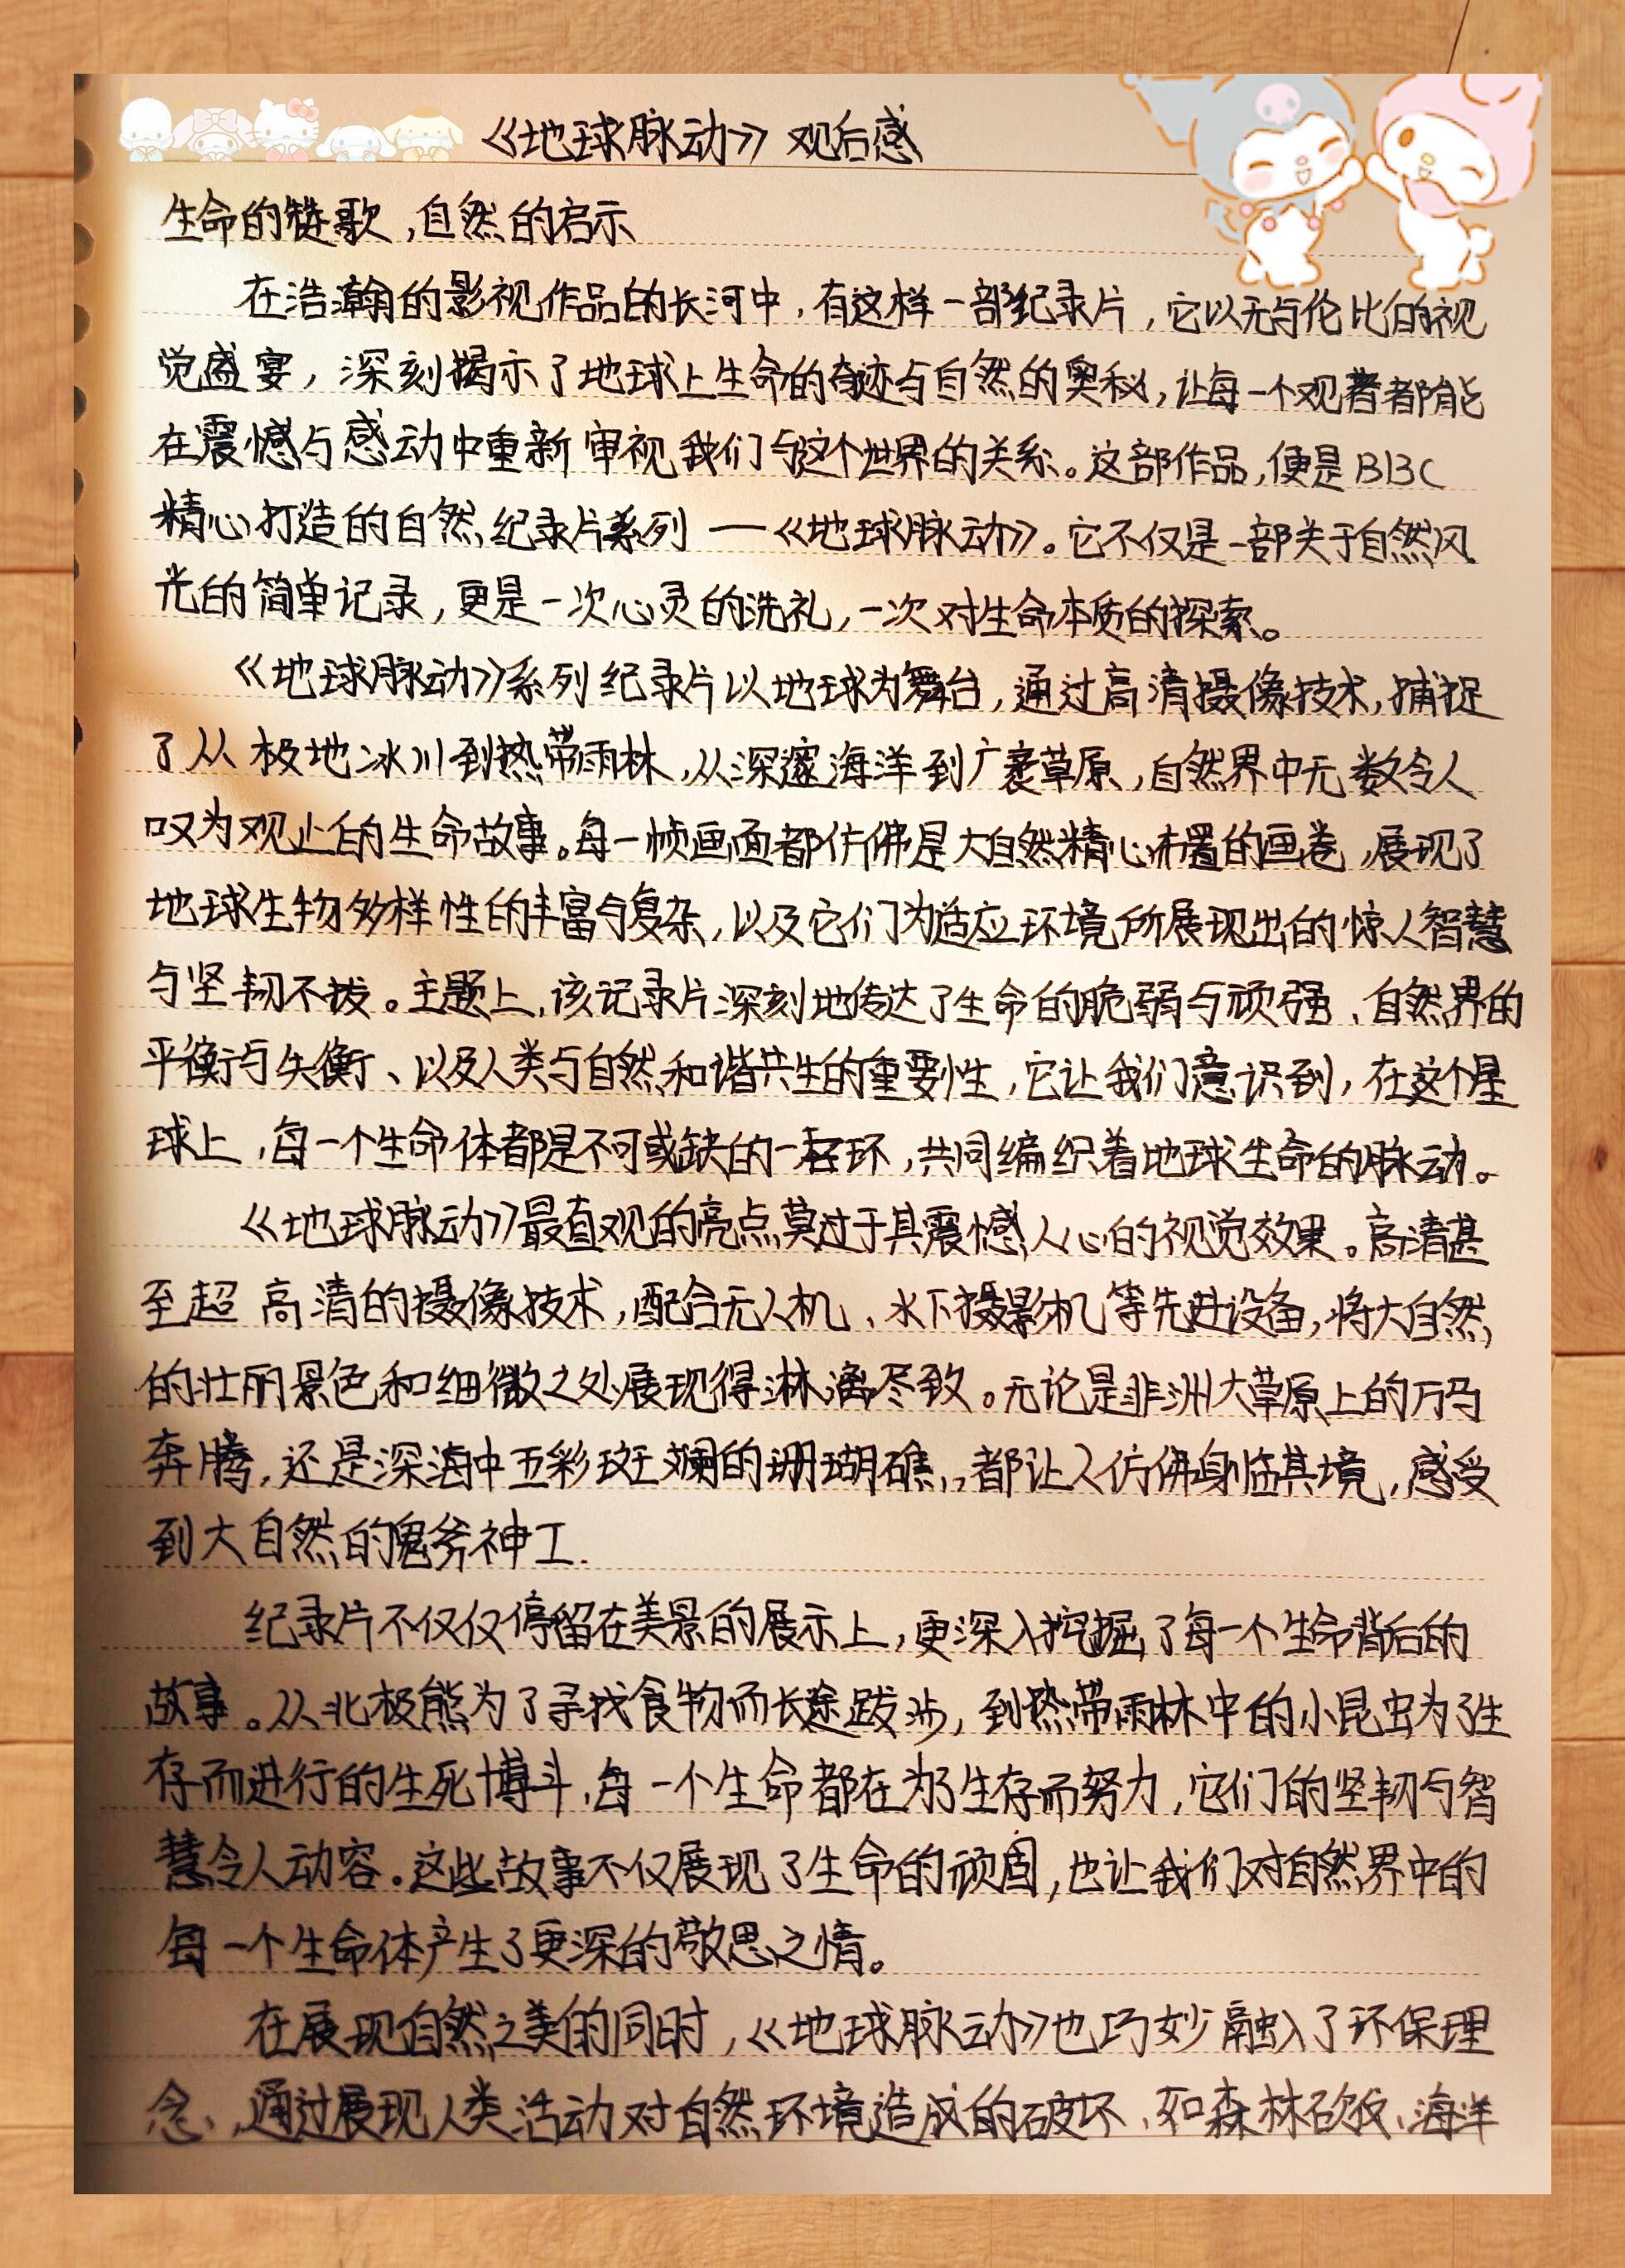 《地球脉动》观后感
生命的赞歌,自然的启示
在浩瀚的影视作品的长河中,有这样一部纪录片,它以无与伦比的视
觉盛宴,深刻揭示了地球上生命的奇迹与自然的奥秘,让每一个观者都能
在震憾与感动中重新审视我们与这个世界的关系。这部作品,便是BBC
精心打造的自然纪录片系列——《地球脉动》。它不仅是一部关于自然风
光的简单记录,更是一次心灵的洗礼,一次对生命本质的探索。
《地球脉动》系列纪录片以地球为舞台,通过高清摄像技术,捕捉
了从极地冰川到热带雨林,从深邃海洋到广袤草原,自然界中无数令人
叹为观止的生命故事。每一帧画面都仿佛是大自然精心布置的画卷,展现了
地球生物多样性的丰富与复杂,以及它们为适应环境所展现出的惊人智慧
与坚韧不拔。主题上,该记录片深刻地传达了生命的脆弱与顽强、自然界的
平衡与失衡、以及人类与自然和谐共生的重要性,它让我们意识到,在这个星
球上,每一个生命体都是不可或缺的一环,共同编织着地球生命的脉动。
《地球脉动》最直观的亮点莫过于其震憾人心的视觉效果。高清甚
至超高清的摄像技术,配合无人机、水下摄影机等先进设备,将大自然
的壮丽景色和细微之处展现得淋漓尽致。无论是非洲大草原上的万马
奔腾,还是深海中五彩斑斓的珊瑚礁,都让人仿佛身临其境,感受
到大自然的鬼斧神工.
纪录片不仅仅停留在美景的展示上,更深入挖掘了每一个生命背后的
故事。从北极熊为了寻找食物而长途跋涉,到热带雨林中的小昆虫为了生
存而进行的生死博斗,每一个生命都在为了生存而努力,它们的坚韧与智
慧令人动容.这些故事不仅展现了生命的顽固,也让我们对自然界中的
每一个生命体产生了更深的敬思之情。
在展现自然之美的同时,《地球脉动》也巧妙融入了环保理
念,通过展现人类活动对自然环境造成的破坏、如森林砍伐、海洋